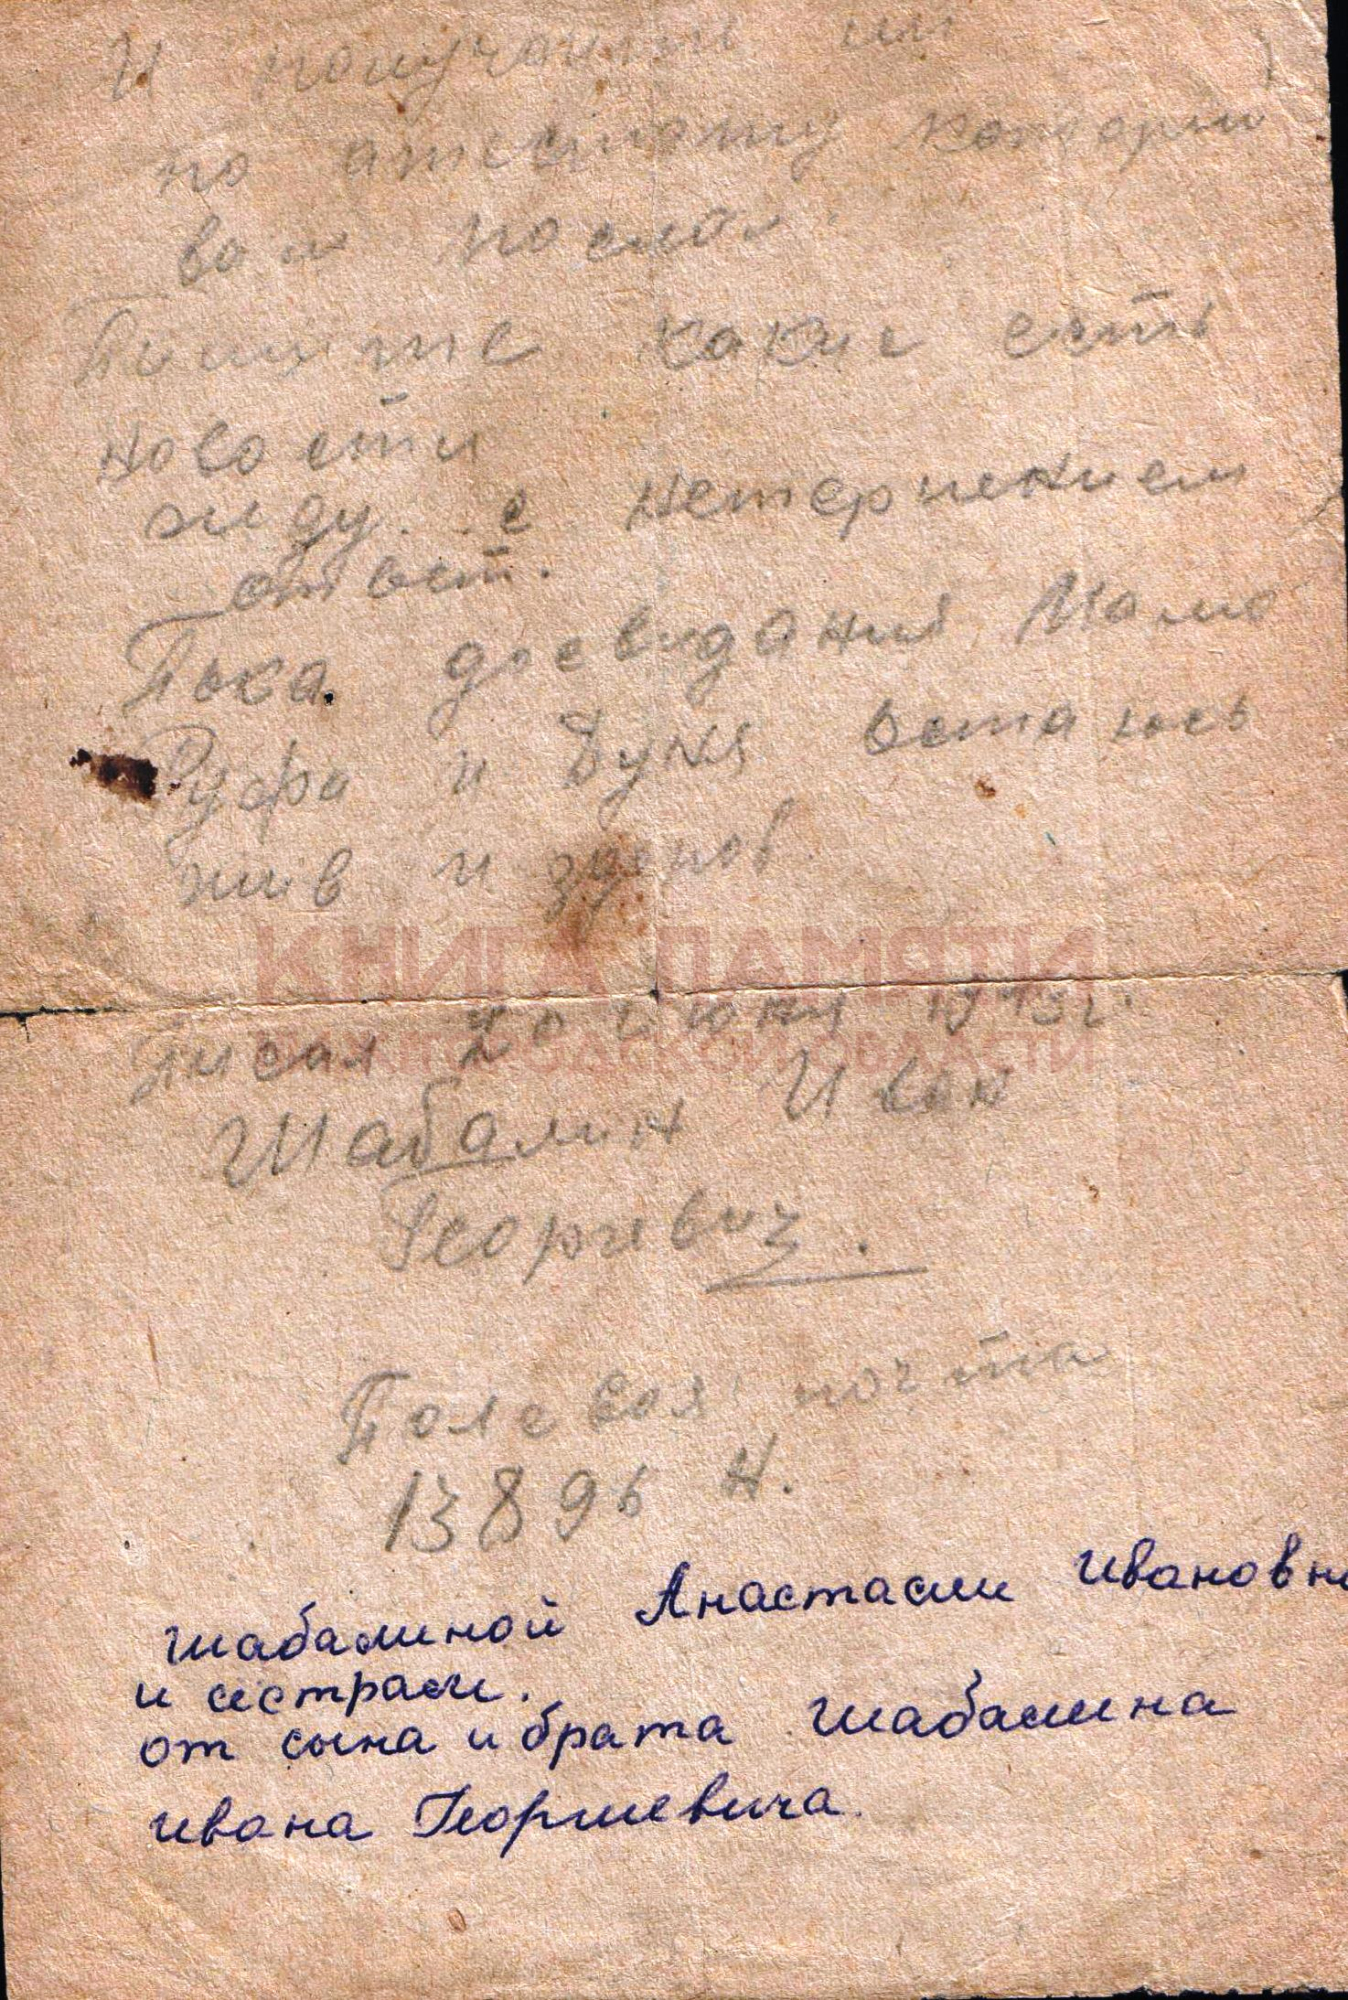 И получаити ли
по атестату которы
вам послал.
Пишите какие есть
новости
жду с нетерпением
ответ.
Пока досвидания Мама
Руфа и Дуня остаюсь
жив и здоров.
КНИГА ПАМЯТИ
ОБЛАСТИ
Писал 20 июня 1943 г.
Шабалин Иван
Георгиевич.
Полевая почта
13896 Н.
Шабалиной Анастасии Ивановн
и сестрам.
от сына и брата Шабалина
Ивана Георгиевича.